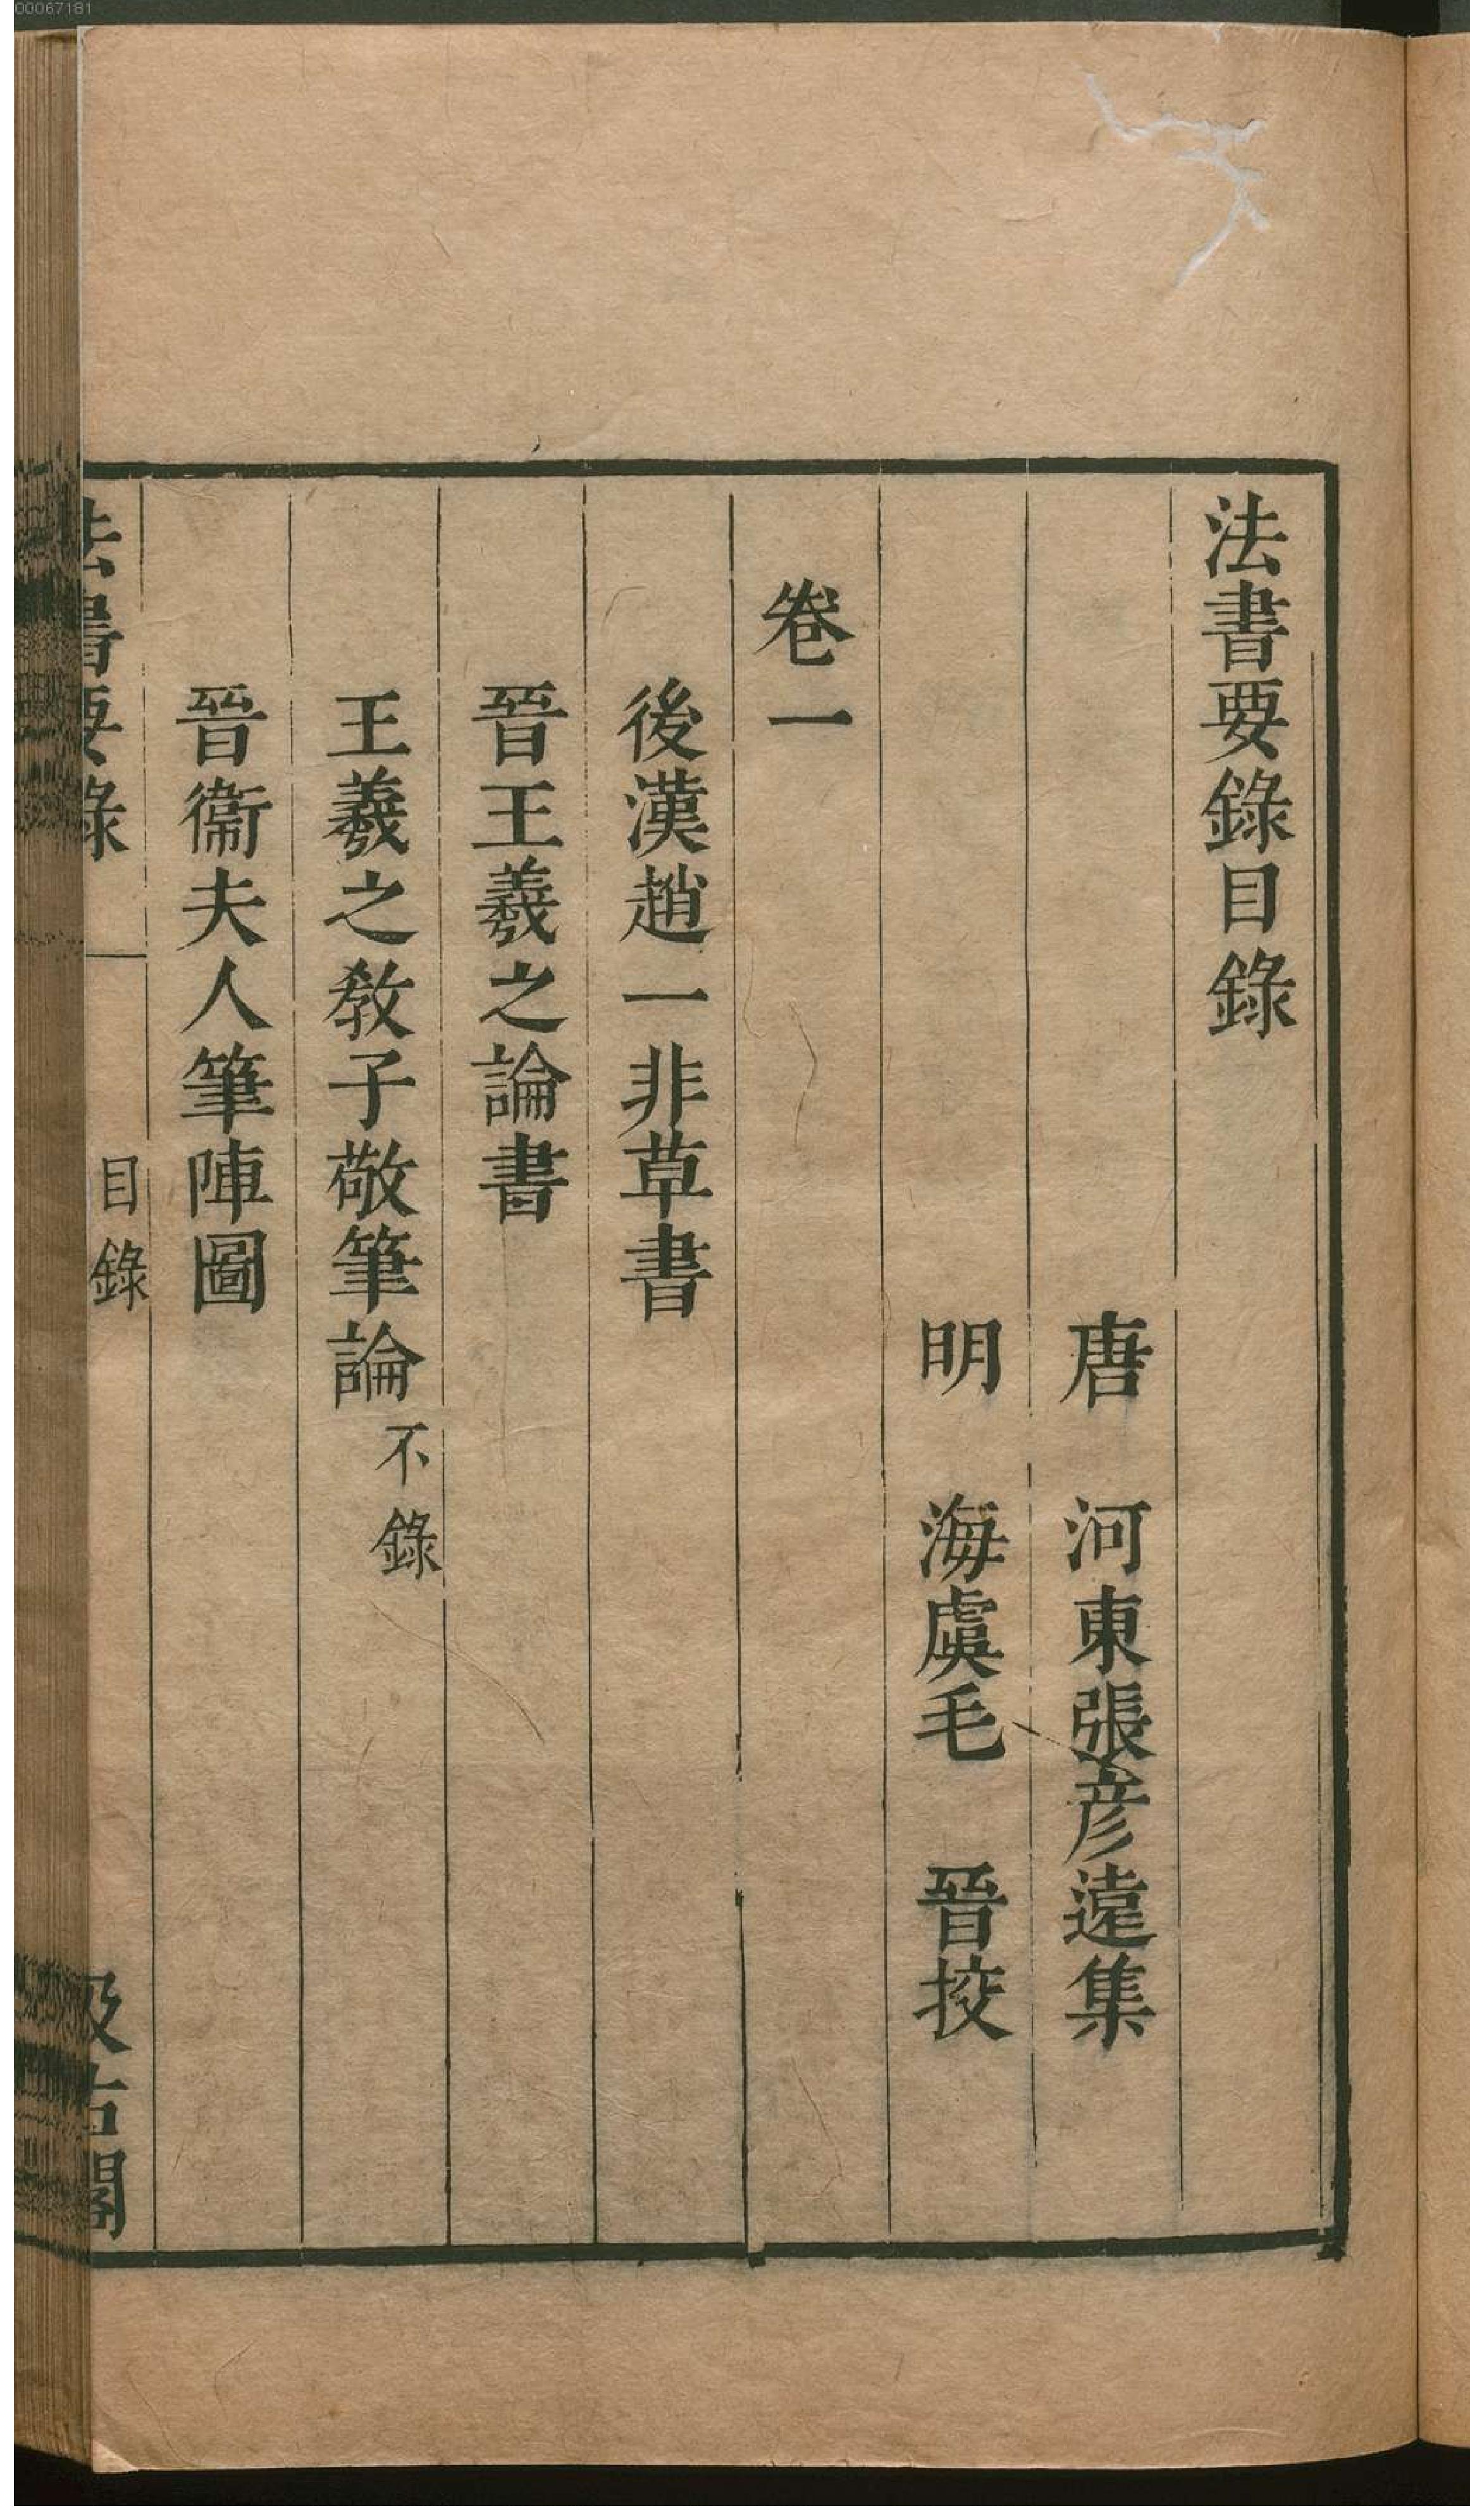 00067181
法書要錄目錄
唐 河東張彥遠集
明 海虞毛 晉挍
卷一
後漢趙一非草書
晉王羲之論書
王羲之教子敬筆論 不錄
晉衞夫人筆陣圖
法書要錄 目錄 汲古閣